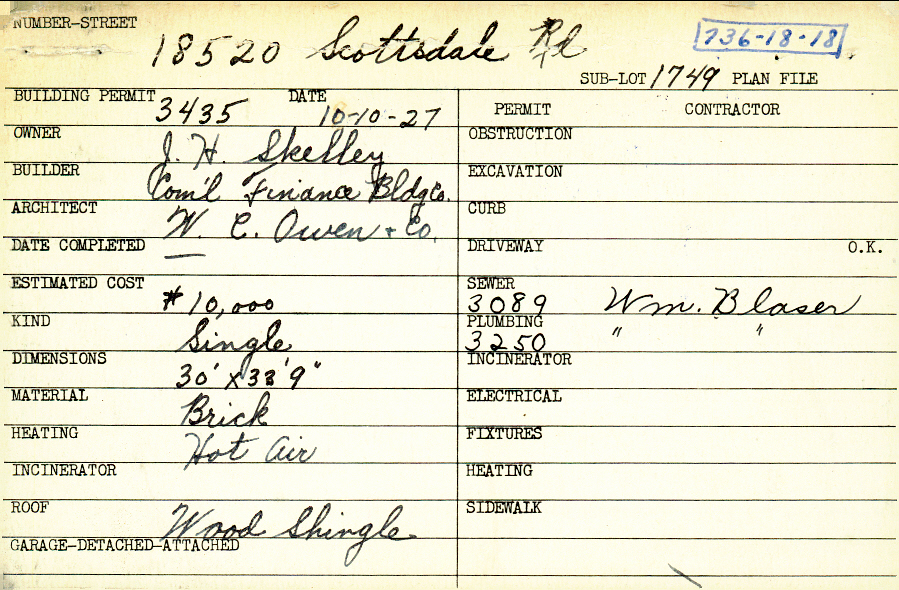 NUMBER-STREET
18520 Scottsdale Rd
736-18-18
SUB-LOT 1749 PLAN FILE
BUILDING PERMIT 3435 DATE 10-10-27
OWNER J. H. Skelley
BUILDER Com'l Finance Bldg Co.
ARCHITECT W. C. Owen + Co.
DATE COMPLETED —
ESTIMATED COST $10,000
KIND Single
DIMENSIONS 30' x 33' 9"
MATERIAL Brick
HEATING Hot Air
INCINERATOR
ROOF Wood Shingle
GARAGE-DETACHED-ATTACHED
PERMIT CONTRACTOR
OBSTRUCTION
EXCAVATION
CURB
DRIVEWAY O.K.
SEWER
3089 Wm. Blaser
PLUMBING
3250 " "
INCINERATOR
ELECTRICAL
FIXTURES
HEATING
SIDEWALK